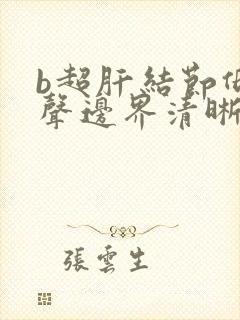 b超肝結節
聲邊界清晰
張雲生